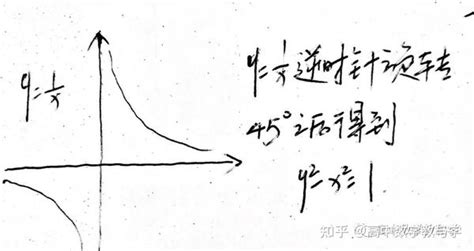 y=1/x
y=1/x逆时针旋转
45°之后得到
y²-x²=1
知乎 @高中数学教与学